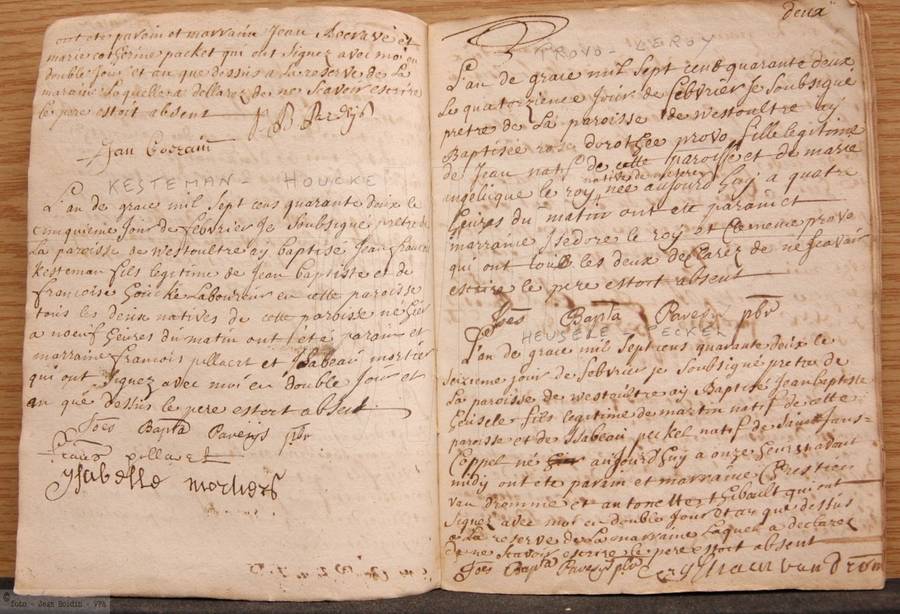 ont ete parein et marraine Jean Becrave et
marie catherine packet qui ont signez avec moi en
double Jour et an que dessus a la reserve de La
maraine Laquelle a dellarez de ne scavoir escrire
le pere estoit absent
KESTEMAN - HOUCKE
L'an de grace mil sept cens quarante deux le
cinquieme Jour de febvrier Je soubsigné pretre de
La paroisse de westoultre ay baptisé Jean francois
Kesteman fils legitime de Jean baptiste et de
francoise houcke Laboureur en cette paroisse
tous les deux natives de cette paroisse né hier
a noeuf heures du matin ont été parain et
marraine francois pillaert et Isabeau mortier
qui ont signez avec moi en double Jour et
an que dessus le pere estoit absent
Joes Bapta Paveÿs pbr
pillaert
Ysabelle mortiers
deux
PROVO - LEROY
L'an de grace mil sept cens quarante deux
Le quatorzieme Jour de febvrier Je soubsigné
pretre de La paroisse de westoultre ay
Baptisée rosa dorothée provo fille legitime
de Jean natif de cette paroisse et de marie
native de
angelique le roy née aujourd'huy a quatre
heures du matin ont ete parain et
marraine Isedore le roy et Clemence provo
qui ont tous les deux declarez de ne scavoir
escrire le pere estoit absent
Joes Bapta Paveÿs pbr
HEUSELE PECKEL
L'an de grace mil sept cens quarante deux le
seixieme jour de febvrier je soubsigné pretre de
La paroisse de westoultre ay Baptisé Jean baptiste
heusele fils legitime de martin natif de cette
paroisse et de Isabeau peckel natif de saint Jans-
Cappel né aujourd'huy a onze heures avant
midy ont ete parein et marraine Chrestien
van dromme et antonette thibault qui ont
signez avec moi en double Jour et an que dessus
a La reserve de La marraine Laquel a declarez
de ne scavoir escrire le pere estoit absent
Joes Bapta Paveÿs pbr van Drom
© foto - Jean Boidin - VPA